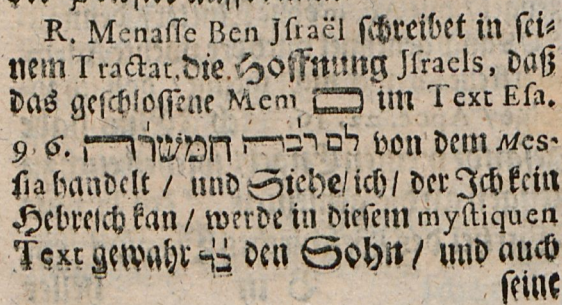 R. Menasse Ben Jsraël schreibet in sei⸗
nem Tractat, die Hoffnung Jsraels, daß
das geschlossene Mem ם im Text Esa.
9. 6. לם רבה המשרה von dem Mes-
sia handelt / und Siehe/ ich/ der Jch kein
Hebreisch kan / werde in diesem mystiquen
Text gewahr בן den Sohn / und auch
seine